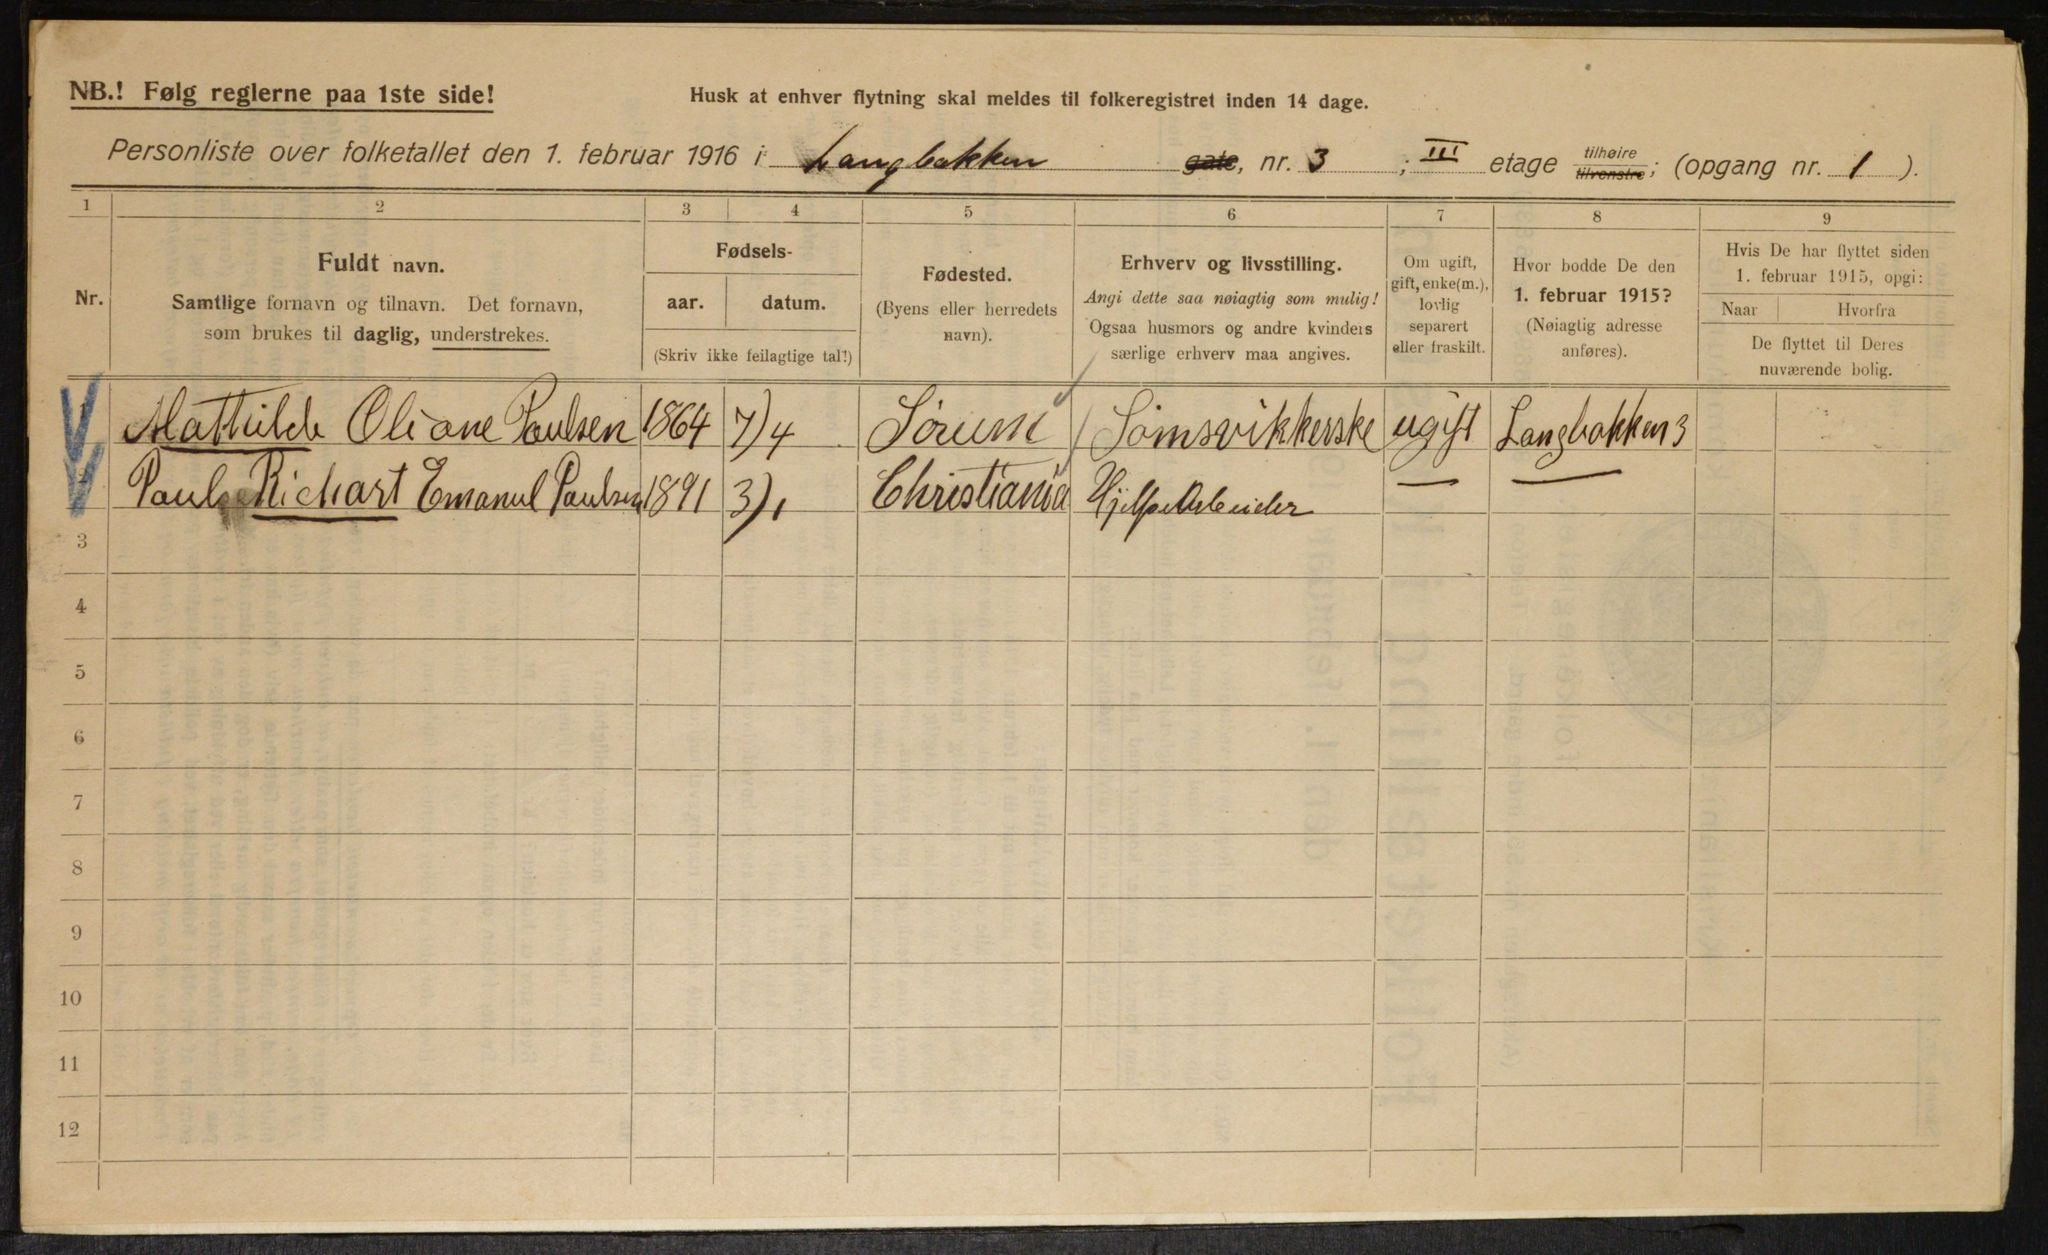 NB.! Følg reglerne paa 1ste side!
Husk at enhver flytning skal meldes til folkeregistret inden 14 dage.
Personliste over folketallet den 1. februar 1916 i Langbakken gate, nr. 3 ; III etage tilhøire tilvenstre; (opgang nr. 1 ).
1 2 3 4 5 6 7 8 9
Nr.
Fuldt navn.
Samtlige fornavn og tilnavn. Det fornavn,
som brukes til daglig, understrekes.
Fødsels-
aar. datum.
(Skriv ikke feilagtige tal!)
Fødested.
(Byens eller herredets
navn).
Erhverv og livsstilling.
Angi dette saa nøiagtig som mulig!
Ogsaa husmors og andre kvinders
særlige erhverv maa angives.
Om ugift,
gift, enke(m.),
lovlig
separert
eller fraskilt.
Hvor bodde De den
1. februar 1915?
(Nøiagtig adresse
anføres).
Hvis De har flyttet siden
1. februar 1915, opgi:
Naar Hvorfra
De flyttet til Deres
nuværende bolig.
Mathilde Oliane Paulsen 1864 7/4 Sørum Sømsvikkerske ugift Langbakken 3
Paul Richart Emanuel Paulsen 1891 3/1 Christiania HjelpeArbeider — —
3
4
5
6
7
8
9
10
11
12